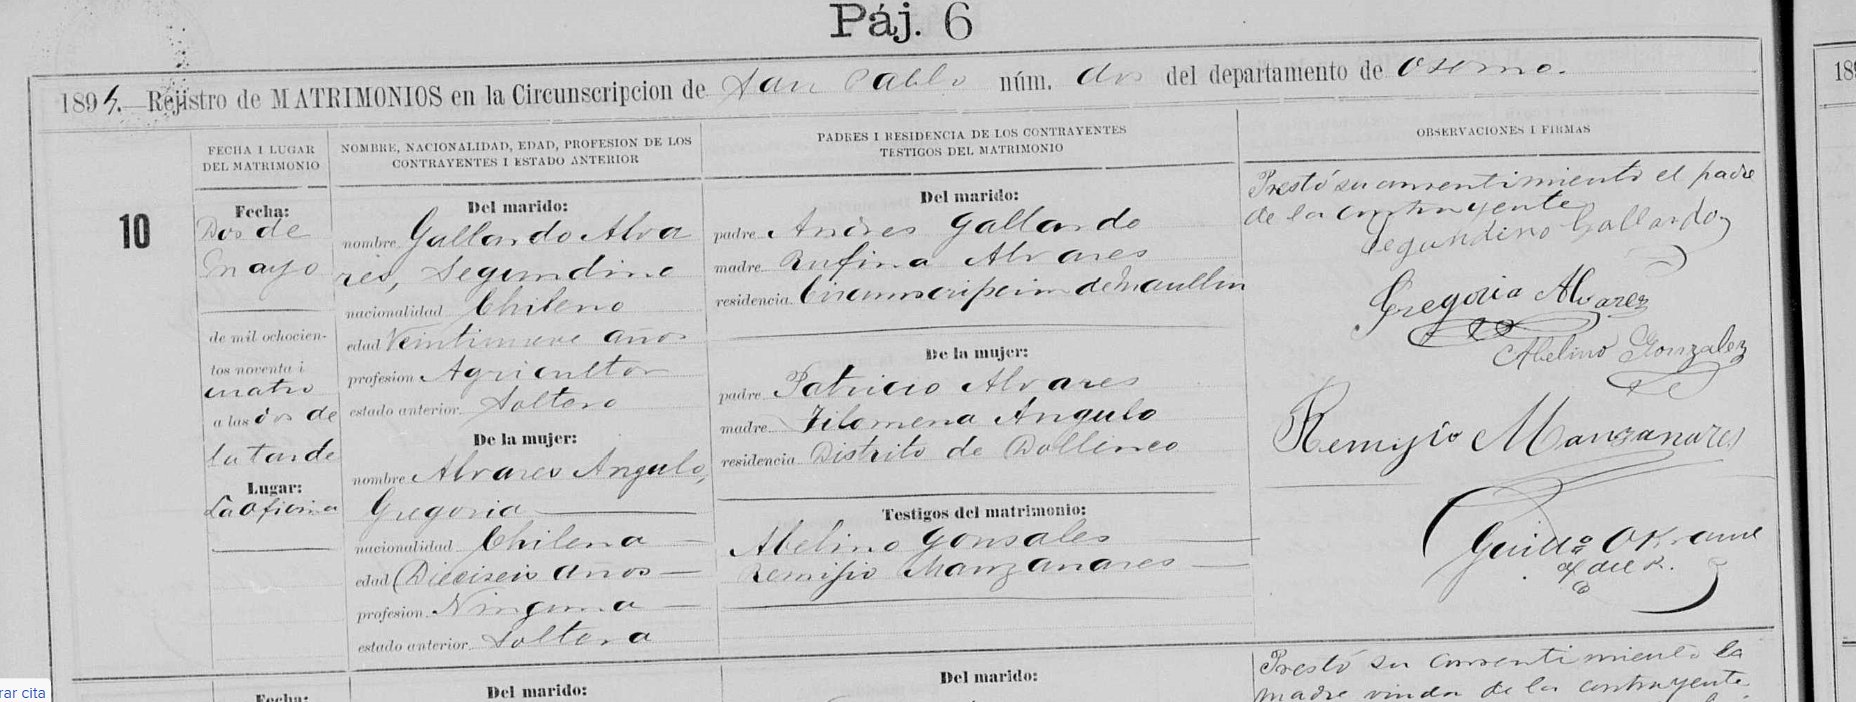 Páj. 6
1894.—Rejistro de MATRIMONIOS en la Circunscripcion de San Pablo núm. dos del departamento de Osorno.
189
FECHA I LUGAR
DEL MATRIMONIO
NOMBRE, NACIONALIDAD, EDAD, PROFESION DE LOS
CONTRAYENTES I ESTADO ANTERIOR
PADRES I RESIDENCIA DE LOS CONTRAYENTES
TESTIGOS DEL MATRIMONIO
OBSERVACIONES I FIRMAS
10
Fecha:
Dos de
Mayo
de mil ochocien-
tos noventa i
cuatro
a las dos de
la tarde
Lugar:
La Oficina
Del marido:
nombre Gallardo Alva
res, Segundino
nacionalidad Chileno
edad Veintinueve años
profesion Agricultor
estado anterior Soltero
De la mujer:
nombre Alvares Angulo,
Gregoria
nacionalidad Chilena
edad Dieciseis años
profesion Ninguna
estado anterior Soltera
Del marido:
padre Andres Gallardo
madre Rufina Alvares
residencia Circunscripcion de Maullin
De la mujer:
padre Patricio Alvares
madre Filomena Angulo
residencia Distrito de Dollinco
Testigos del matrimonio:
Abelino Gonsales
Remijio Manzanares
Prestó su consentimiento el padre
de la contrayente
Segundino Gallardo
Gregoria Alvarez
Abelino Gonzalez
Remijio Manzanares
Guido
rar cita
Fecha:
Del marido:
Del marido:
Prestó su consentimiento la
madre viuda de la contrayente